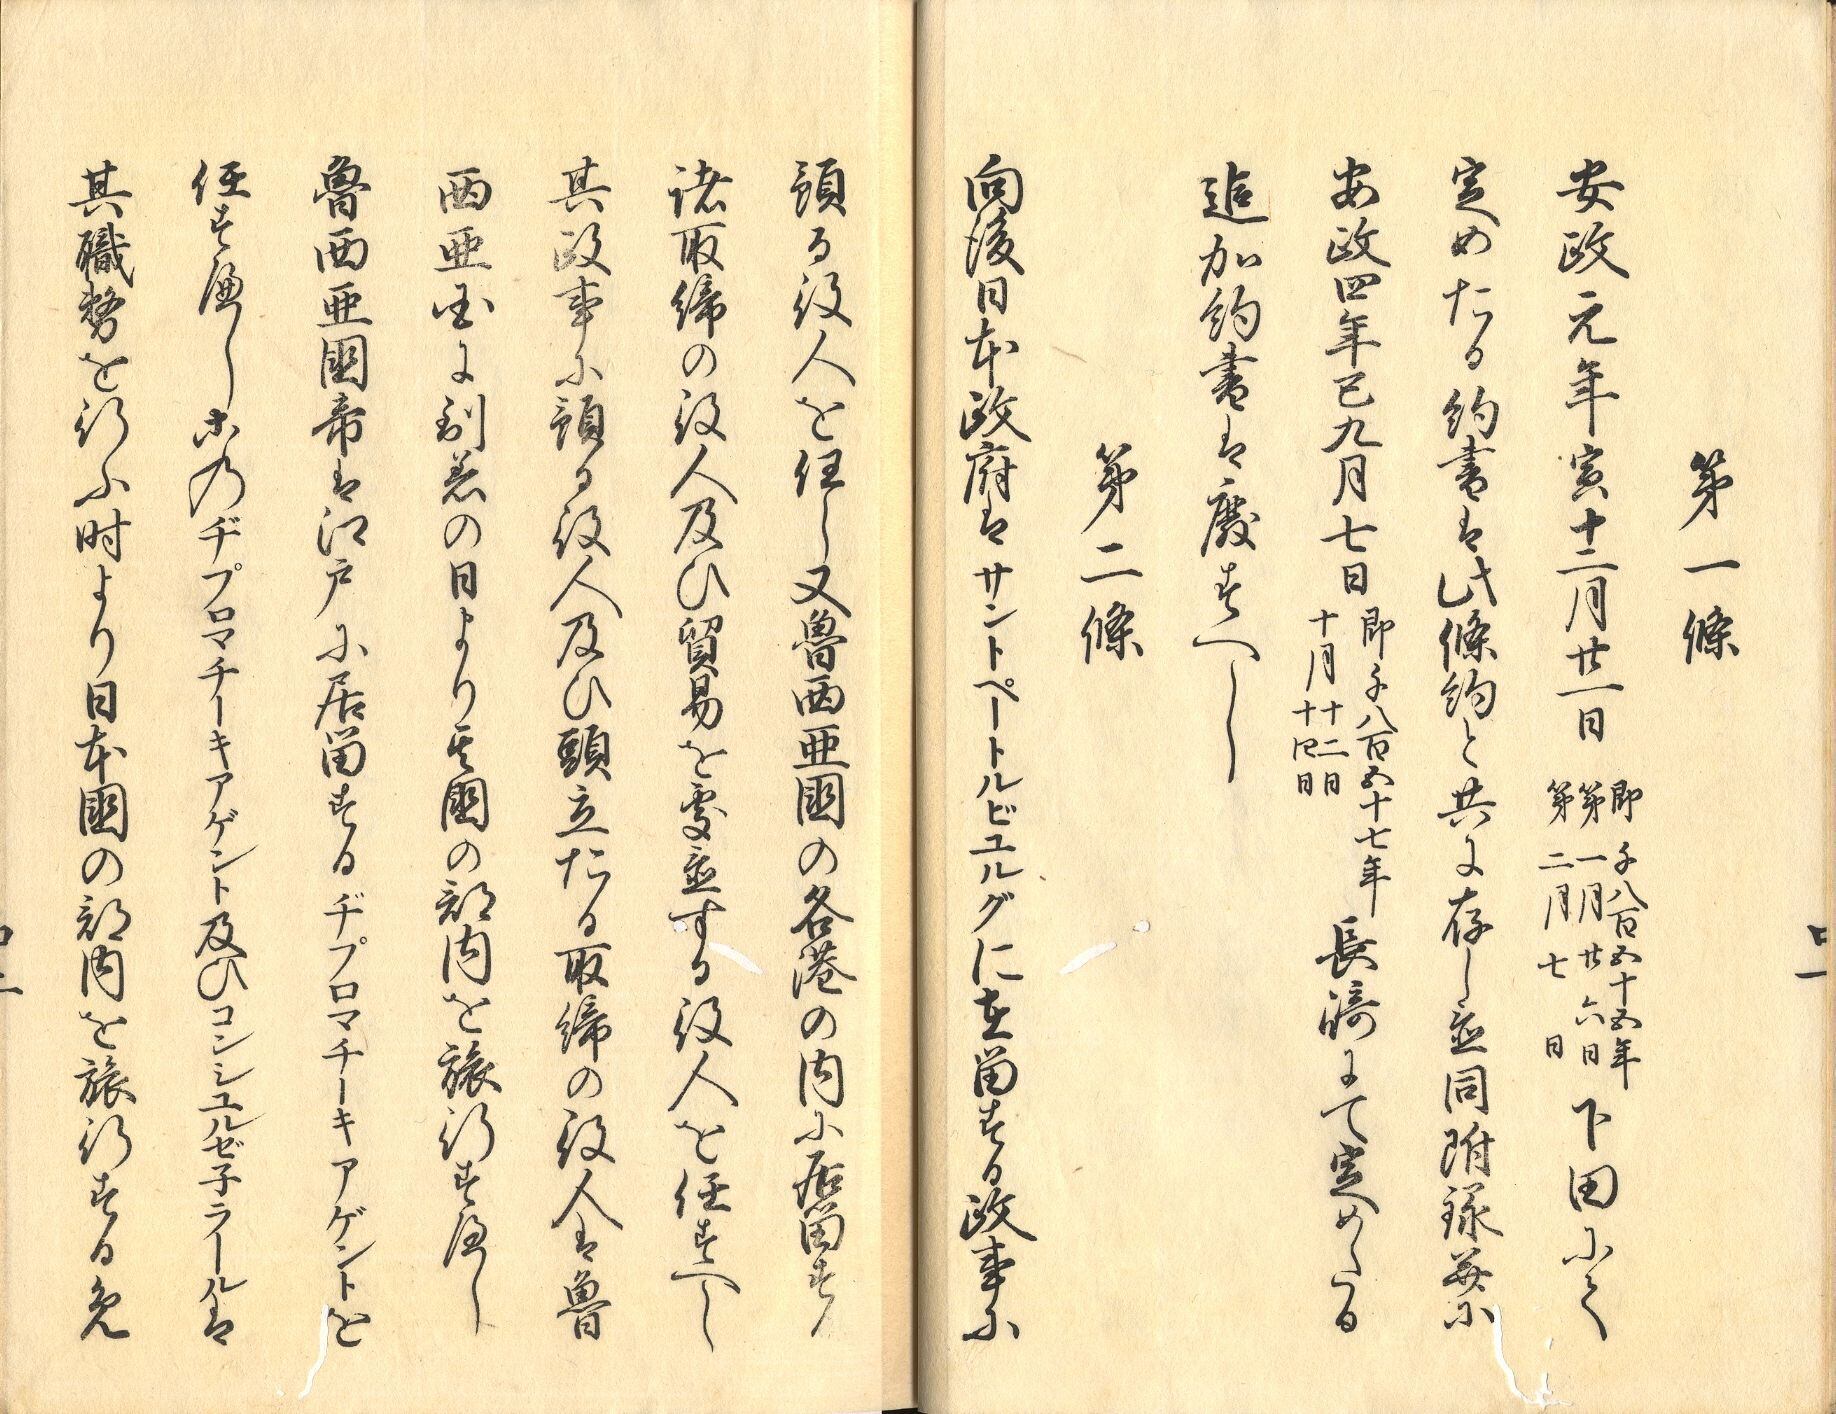 第一條
安政元年寅十二月廿一日 即千八百五十五年 第一月廿六日 第二月七日 下田にて
定めたる約書は此條約と共に存し並同附録并に
安政四年巳九月七日 即千八百五十七年 十月十二日 十月廿四日 長﨑にて定めたる
追加約書は廢すへし
第二條
向後日本政府はサントペートルビユルグに在留する政事に
預る役人を任し又魯西亜國の各港の内に居留す
諸取締の役人及ひ貿易を處置する役人を任すへし
其政事に預る役人及ひ頭立たる取締の役人は魯
西亜国に到着の日より其國の部内を旅行すへし
魯西亜國帝は江戸に居留するヂプロマチーキアゲントを
任すへしこのヂプロマチーキアゲント及ひコンシユルゼ子ラールは
其職務を行ふ時より日本國の部内を旅行する免